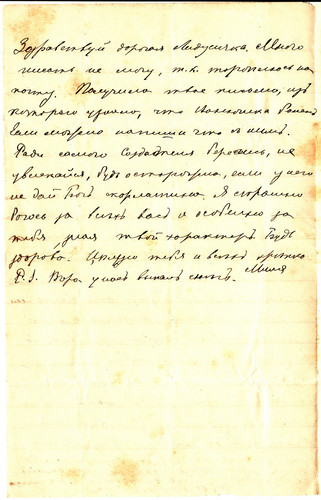 Здравствуй дорогая Лидусичка. Много
писать не могу, т.к. тороплюсь на
почту. Получила твое письмо, изъ
котораго узнаю, что
Если можно напиши что съ нимъ.
Ради самого Создателя берегись, не
увлекайся, будь осторожна, если у него
не дай Богъ скорлатина. Я страшно
боюсь за всѣхъ васъ и особенно за
тебя, зная твой характеръ. Будь
здорова. Цѣлую тебя и всѣхъ крѣпко
P.S. Вчера у насъ выпалъ снѣгъ.